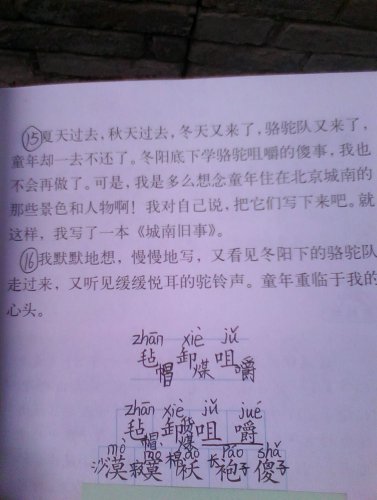 ⑮夏天过去,秋天过去,冬天又来了,骆驼队又来了,
童年却一去不还了。冬阳底下学骆驼咀嚼的傻事,我也
不会再做了。可是,我是多么想念童年住在北京城南的
那些景色和人物啊!我对自己说,把它们写下来吧。就
这样,我写了一本《城南旧事》。
⑯我默默地想,慢慢地写,又看见冬阳下的骆驼队
走过来,又听见缓缓悦耳的驼铃声。童年重临于我的
心头。
zhān xiè jǔ
毡帽卸煤咀嚼
zhān xiè jǔ jué
毡帽卸煤咀嚼
mò mò ǎo páo shǎ
沙漠寂寞棉袄长袍子傻子